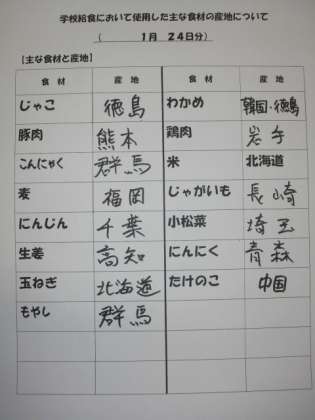 学校給食において使用した主な食材の産地について
(　1月　24日分)
【主な食材と産地】
食　材　産　地　食　材　産　地
じゃこ　徳島　わかめ　韓国・徳島
豚肉　熊本　鶏肉　岩手
こんにゃく　群馬　米　北海道
麦　福岡　じゃがいも　長崎
にんじん　千葉　小松菜　埼玉
生姜　高知　にんにく　青森
玉ねぎ　北海道　たけのこ　中国
もやし　群馬